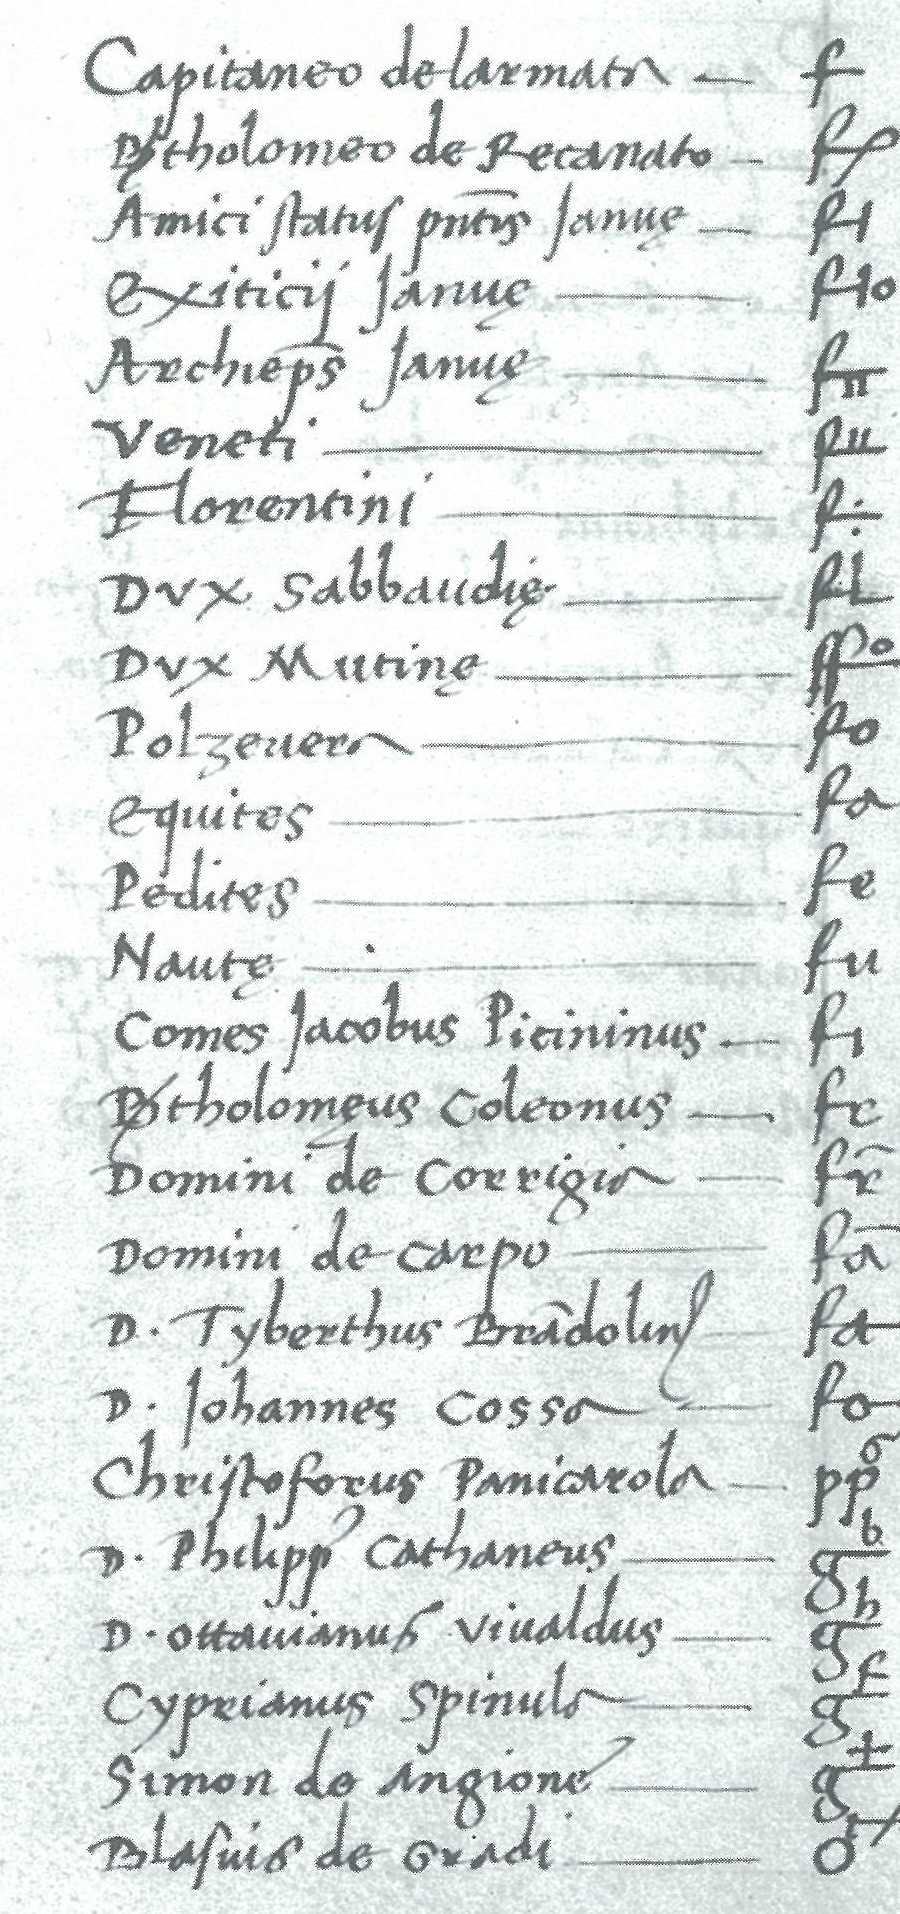 Capitaneo de larmata — f
Bartholomeo de Recanato —
Amici status pntis Januę —
Exiticij Januę —
Archieps Januę —
Veneti —
Florentini —
Dux Sabbaudię —
Dux Mutinę —
Polzeuera — fo
equites — fa
Pedites — fe
Nautę — fu
Comes Jacobus Picininus — fi
Bartholomęus Coleonus — fc
Domini de Corrigia — fr̄
Domini de Carpo — fā
D. Tyberthus Brādolin
D. Johannes Cossa —
Christoforus Panicarola — ppo
D. Philipp Cathaneus — gb
D. Ottauianus Viualdus — gh
Cyprianus Spinula — gf
Simon de Angione —
Blasius de Gradi —